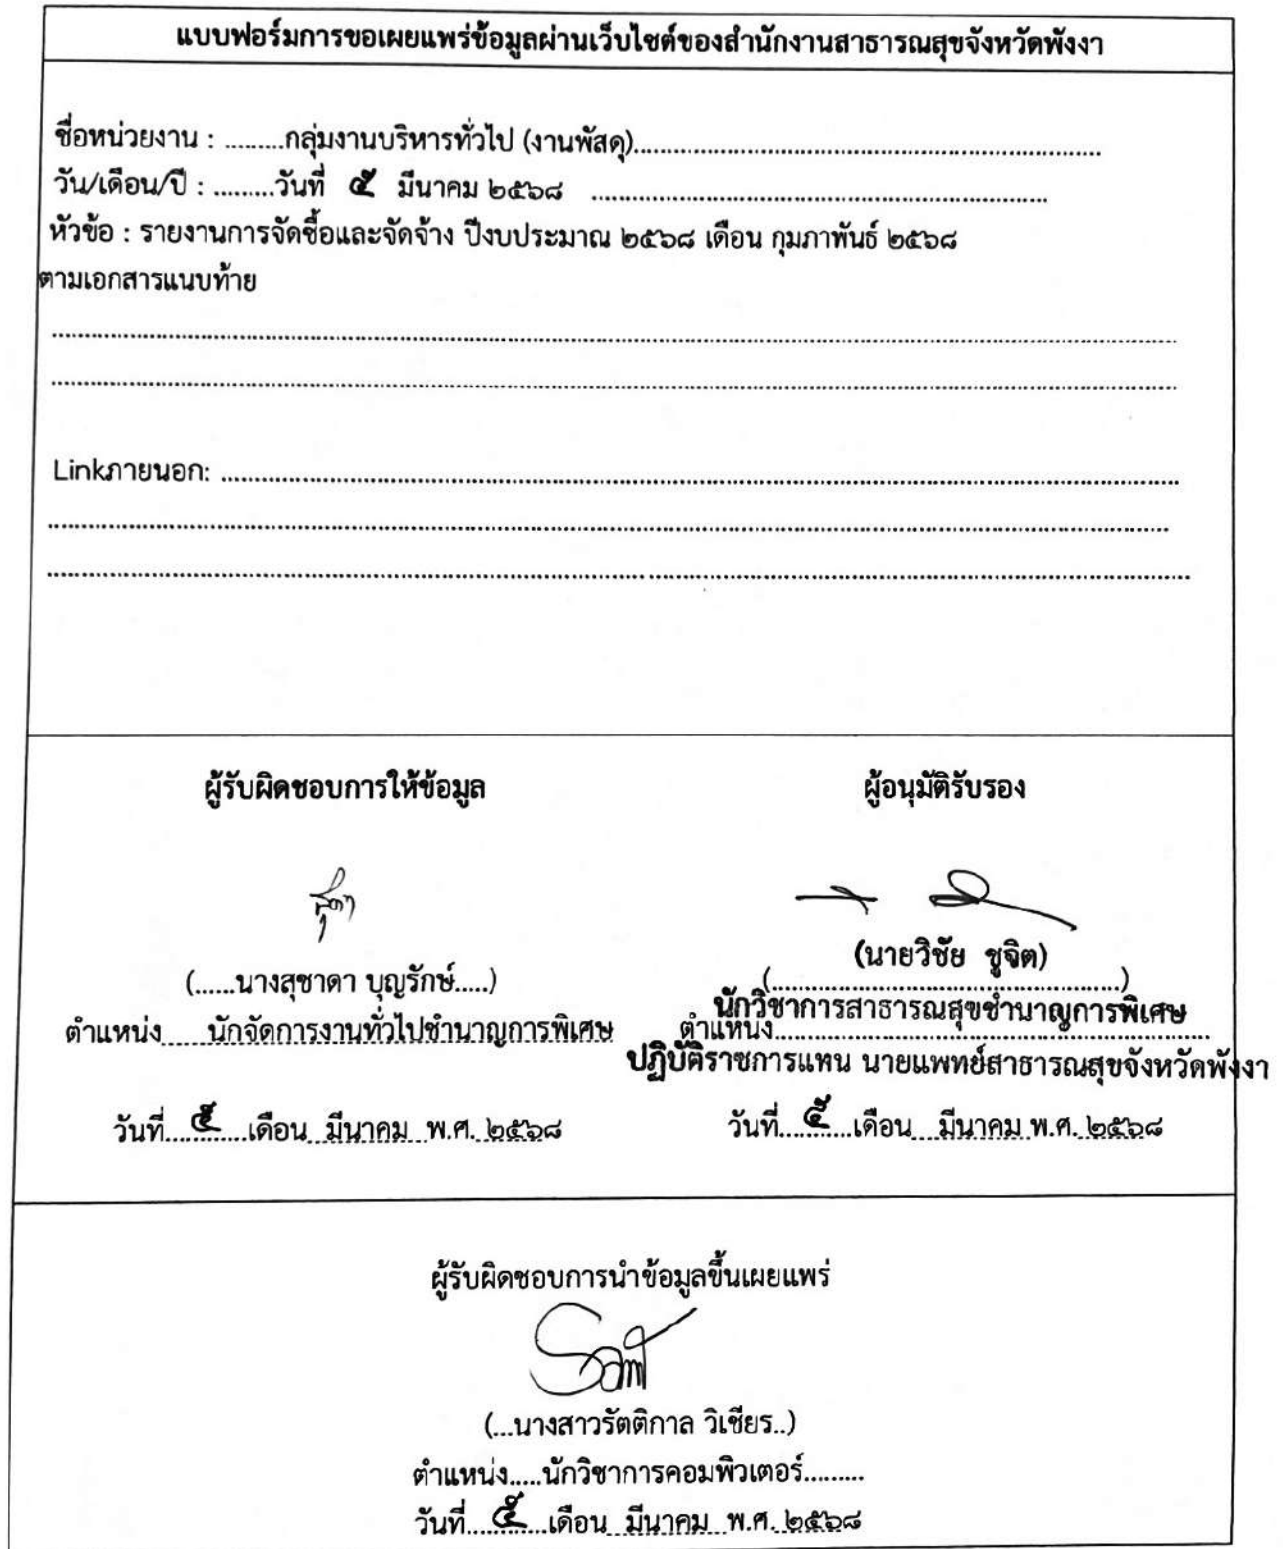 แบบฟอร์มการขอเผยแพร่ข้อมูลผ่านเว็บไซต์ของสำนักงานสาธารณสุขจังหวัดพังงา
ชื่อหน่วยงาน : .........กลุ่มงานบริหารทั่วไป (งานพัสดุ)......................................................................
วัน/เดือน/ปี : .........วันที่ ๕ มีนาคม ๒๕๖๘ ......................................................................
หัวข้อ : รายงานการจัดซื้อและจัดจ้าง ปีงบประมาณ ๒๕๖๘ เดือน กุมภาพันธ์ ๒๕๖๘
ตามเอกสารแนบท้าย
Linkภายนอก: ......................................................................
ผู้รับผิดชอบการให้ข้อมูล
(......นางสุชาดา บุญรักษ์.....)
ตำแหน่ง......นักจัดการงานทั่วไปชำนาญการพิเศษ
วันที่.....๕.....เดือน มีนาคม พ.ศ. ๒๕๖๘
ผู้อนุมัติรับรอง
(นายวิชัย ชูจิต)
(......................................................)
นักวิชาการสาธารณสุขชำนาญการพิเศษ
ตำแหน่ง......................................................................
ปฏิบัติราชการแทน นายแพทย์สาธารณสุขจังหวัดพังงา
วันที่.....๕.....เดือน มีนาคม พ.ศ. ๒๕๖๘
ผู้รับผิดชอบการนำข้อมูลขึ้นเผยแพร่
(...นางสาวรัตติกาล วิเชียร..)
ตำแหน่ง.....นักวิชาการคอมพิวเตอร์.........
วันที่.....๕.....เดือน มีนาคม พ.ศ. ๒๕๖๘